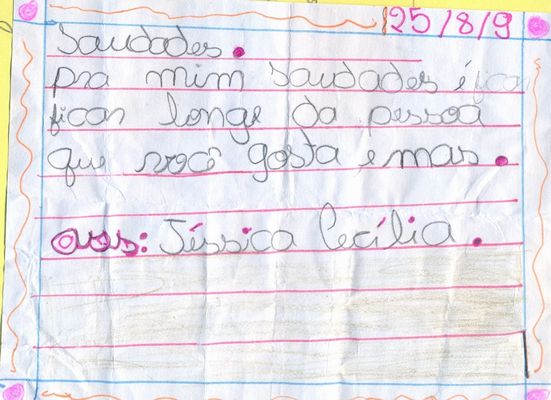 25/8/9
Saudades.
pra mim saudades é fican
ficar longe da pessoa
que você gosta e mas.
ass: Jéssica Cecília.